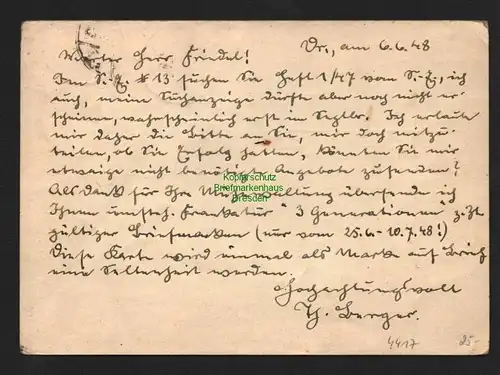 Dr., am 6.6.48
Werter Herr Friedel!
Im S.-E. # 13 suchen Sie Heft 1/47 vom S.-E, ich
auch, meine Suchanzeige dürfte aber noch nicht er-
scheinen, wahrscheinlich erst im Septbr. Ich erlaube
mir daher die Bitte an Sie, mir doch mitzu-
teilen, ob Sie Erfolg hatten, könnten Sie mir
etwaige nicht benötigte Angebote zusenden?
Als Dank für Ihre übersende ich
Ihnen umsteh. Frankatur "3 Generationen" z.Zt.
gültiger Briefmarken (nur vom 25.6.-10.7.48!)
Diese Karte wird einmal als Marke auf Brief
eine Seltenheit werden.
Hochachtungsvoll
Th. Berger.
Kopierschutz
Briefmarkenhaus
Dresden
4417 25.-